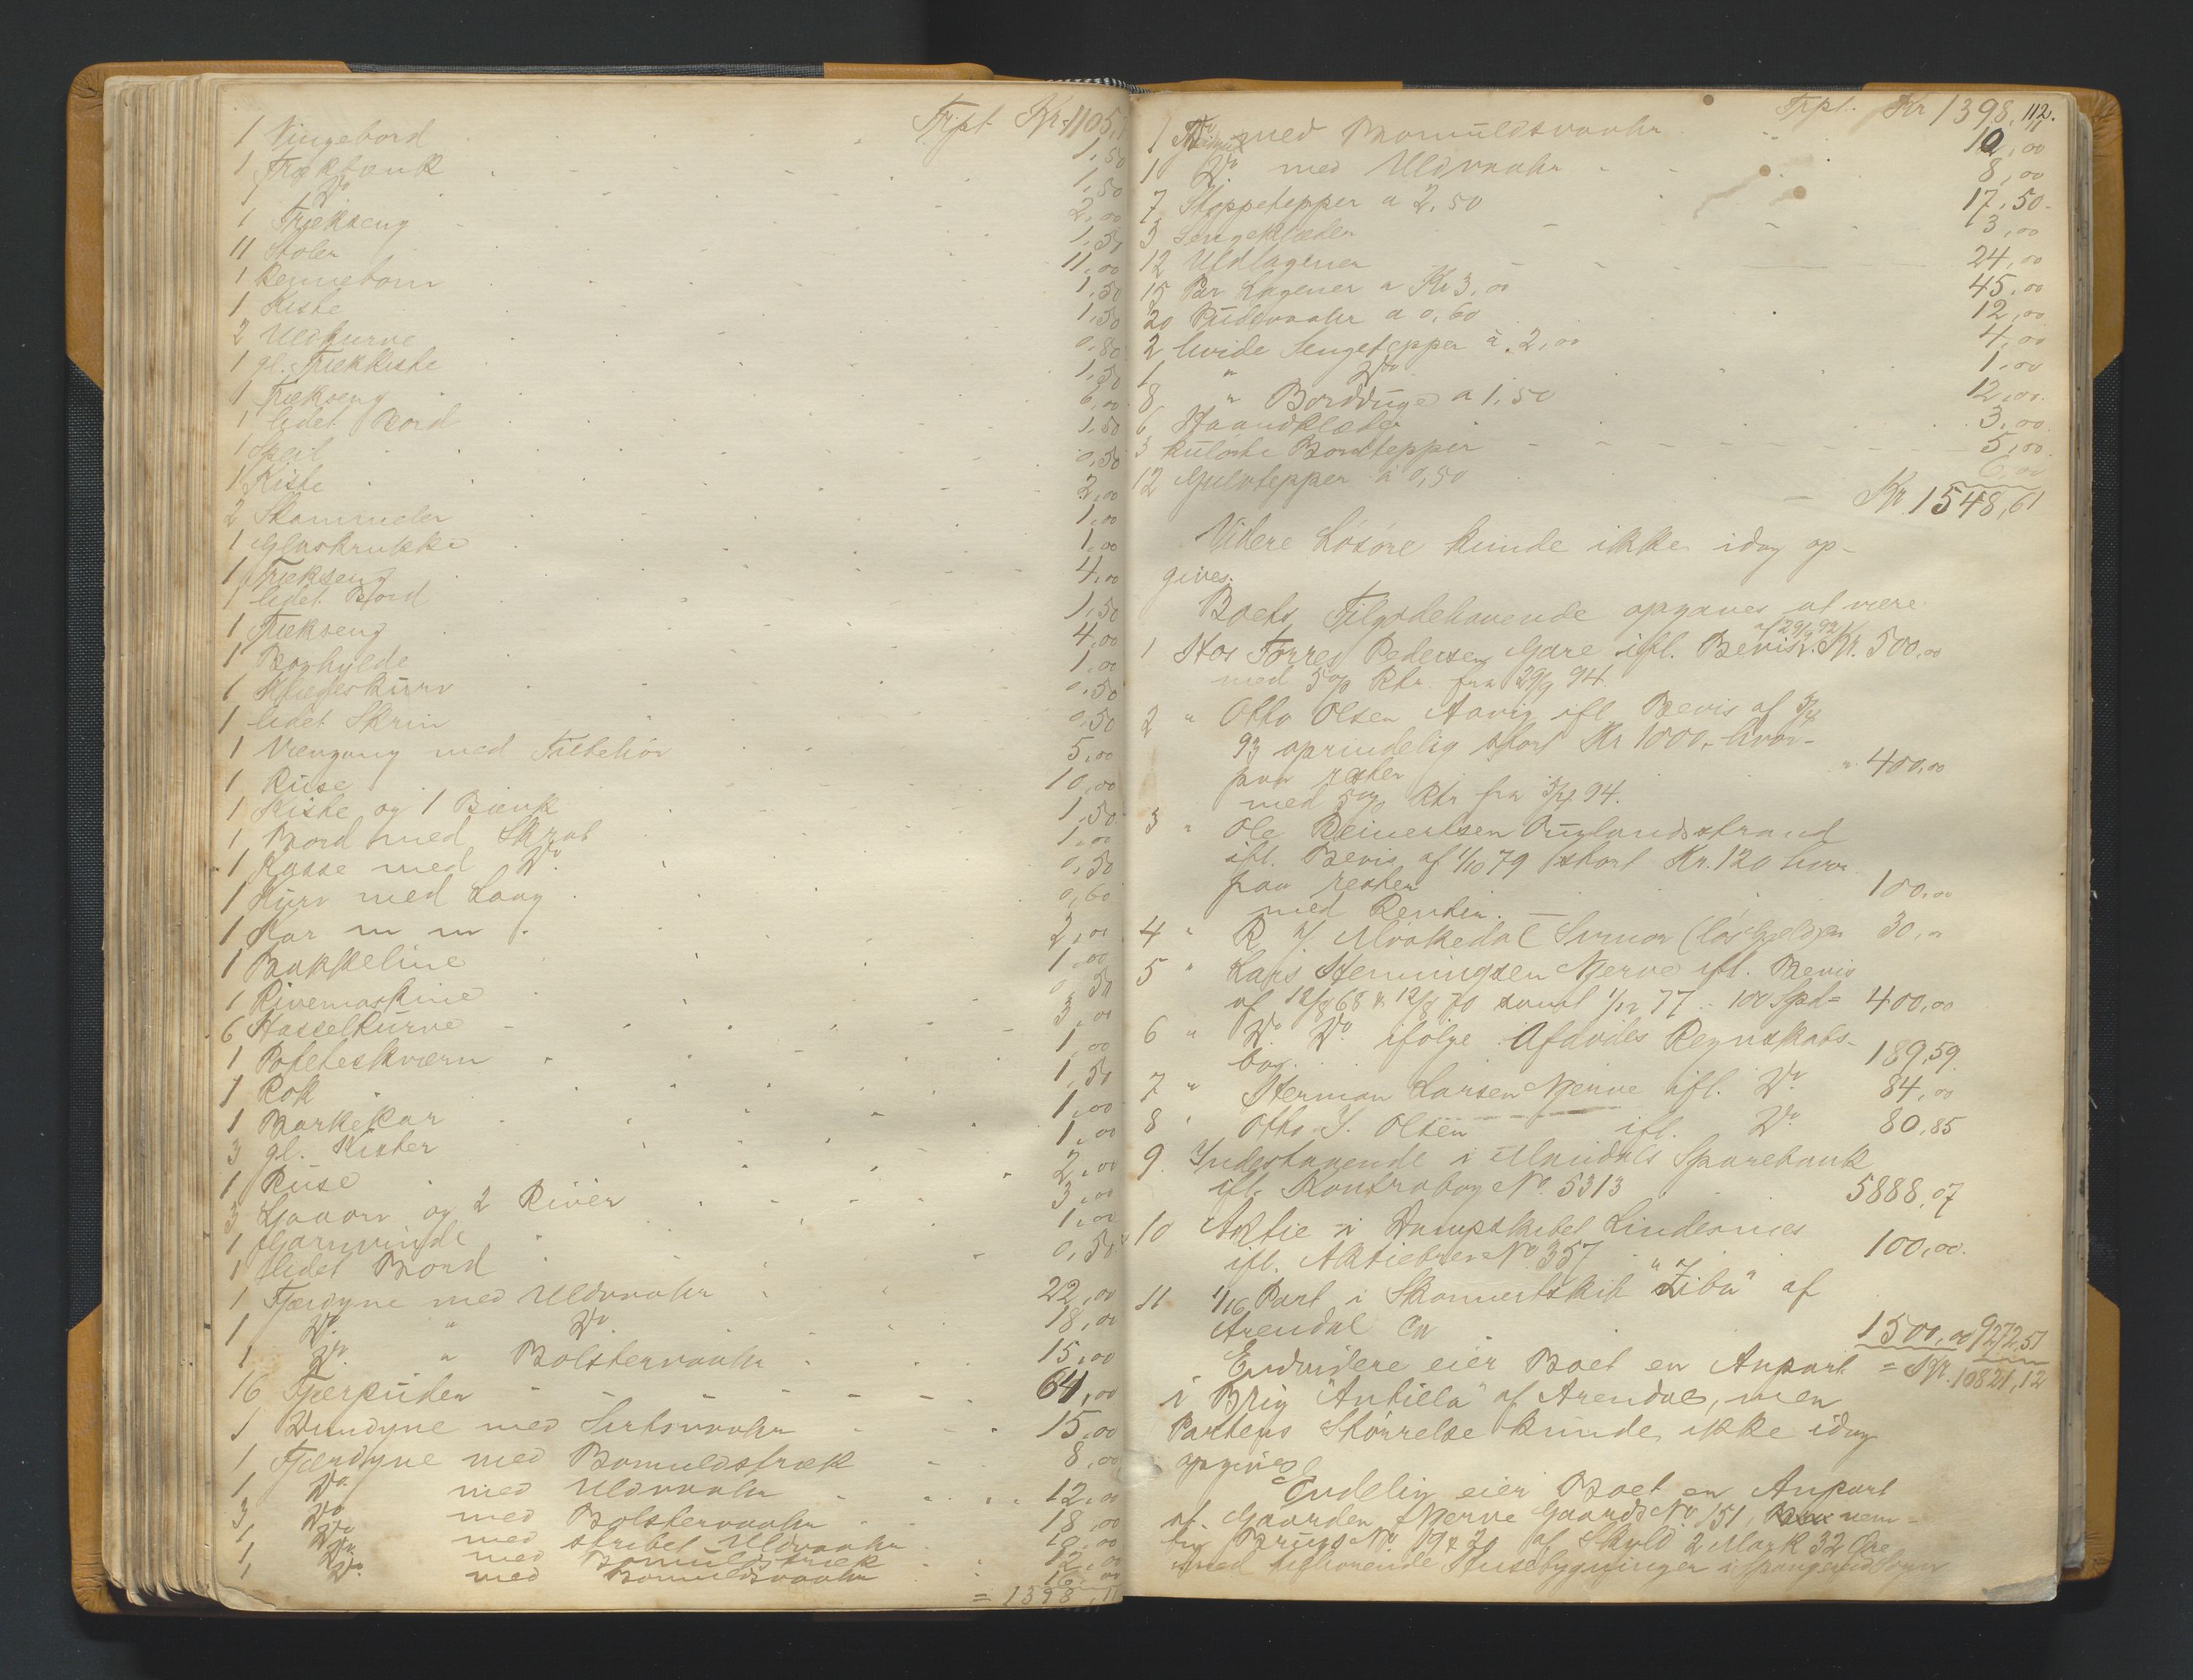 Trpt. Kr. 1105,
1 Vingebord 1,50
1 Trækbænk 1,50
1 Do 2,00
1 Trækseng 1,50
11 Stoler 11,00
1 1,50
1 Kiste 1,50
2 Uldkurve 0,80
1 gl. Trækkiste 1,50
1 Trækseng 6,00
1 lidet Bord 1,50
1 Speil 0,50
1 Kiste 2,00
2 Skammeler 1,00
1 Glaskrukke 1,00
1 Trækseng 4,00
1 lidet Bord 1,50
1 Trækseng 4,00
1 Boghylde 1,00
1 Klædeskurv 0,50
1 lidet Skrin 0,50
1 Vævgang med Tilbehör 5,00
1 Ruse 10,00
1 Kiste og 1 Bænk 1,50
1 Bord med Skrab 1,00
1 Kasse med Do 0,50
1 Kurv med Laag 0,60
1 Kar m m 2,00
1 Bakkeline 1,00
1 Rivemaskine 0,50
6 Hasselkurve 3,00
1 Poteteskværn 1,00
1 Rok 1,50
1 Barkekar 1,00
3 gl. Kister 1,00
1 Ruse 2,00
3 Ljaaorv og 2 River 3,00
1 Garnvinde 1,00
1 lidet Bord 0,50
1 Fjærdyne med Uldvaahr 22,00
1 Do " Do 18,00
1 Do " Bolstervaahr 15,00
16 Fjærpuder 64,00
1 Dundyne med Sirtsvaahr 15,00
1 Fjærdyne med Bomuldstræk 8,00
1 Do med Uldvaahr 12,00
3 Do med Bolstervaahr 18,00
1 Do med stribet Uldvaahr 10,00
1 Do med Bomuldstræk 12,00
1 Do med Bomuldsvaahr 16,00
= 1398,11
Trpt. Kr 1398,11
112.
1 Do med Bomuldsvaahr 10,00
1 Do med Uldvaahr 8,00
7 Stoppetepper a 2,50 17,50
3 Sengeklæder 3,00
12 Uldlagener 24,00
15 Par Lagener a Kr 3,00 45,00
20 Pudevaahr a 0,60 12,00
2 hvide Sengetepper à 2,00 4,00
1 " Do 1,00
8 " Bordduge a 1,50 12,00
6 Haandklæder 3,00
3 kulörte Bordtepper 5,00
12 Gulvtepper à 0,50 6,00
Kr 1548,61
Videre Lösöre kunde ikke idag op-
gives.
Boets Tilgodehavende opgaves at være
1 Hos Torres Pedersen Gare ifl. Bevis af 29/9 92 Kr. 500,00
med 5% Rtr. fra 29/9 94.
2 " Otto Olsen Aavig ifl Bevis af 3/4
93 oprindelig stort Kr 1000,- hvor-
paa rester " 400,00
med 5% Rtr fra 3/4 94.
3 " Ole Reinertsen Ouglandsstrand
ifl. Bevis af 1/10 79 stort Kr. 120 hvor
paa rester 100,00
med Renter.
4 " R. Svinor (lös Gjeld) 30,"
5 " Lars Henningsen Njerve ifl. Bevis
af 12/8 68 & 12/8 70 samt 1/12 77 100 Spd = 400,00
6 " Do Do ifölge Afdödes Regnskabs-
bog. 189,59
7 " Herman Larsen Njerve ifl. Do 84,00
8 " Otto I. Olsen ifl. Do 80,85
9 Indestaaende i Mandals Sparebank
ifl. Kontrabog No. 5313 5888,07
10 Aktie i Dampskibet Lindesnes
ifl. Aktiebrev No 357 100,00
11 1/16 Part i Skonnertskib "Ziba" af
Arendal Ca 1500,00 9272,51
Endvidere eier Boet en Anpart = Kr. 10821,12
i Brig "Antilla" af Arendal, men
Partens Störrelse kunde ikke idag
opgives
Endelig eier Boet en Anpart
af Gaarden Njerve Gaards No 151, nem-
lig Brugs No 19 & 20 af Skyld 2 Mark 32 Öre
med tilhörende Husebygninger i Spangereid Sogn